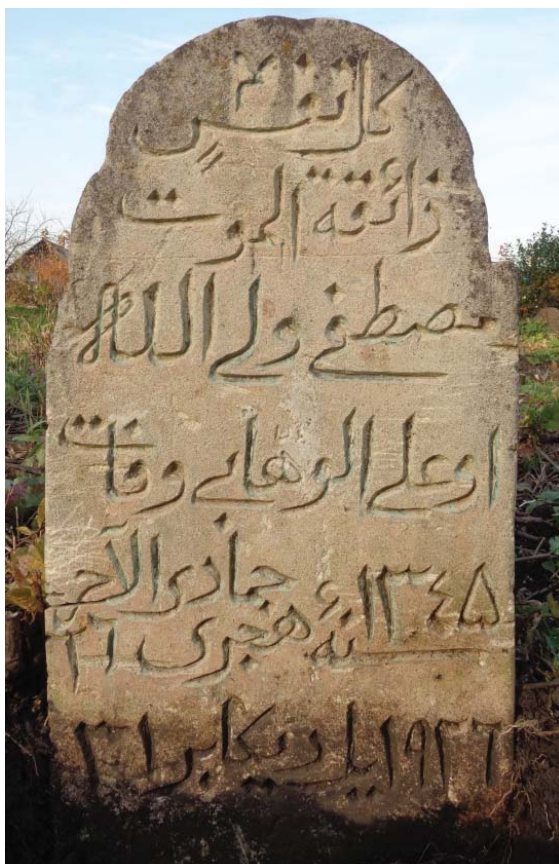 كل نفسٍ
ذائقة الموت
مصطفى ولي الله
اوعلى الوهابى وفات
جمادى الآخر
١٣٤٥ سنهٔ هجرى ٢٦
١٩٢٦ يل ديكابر ٣١